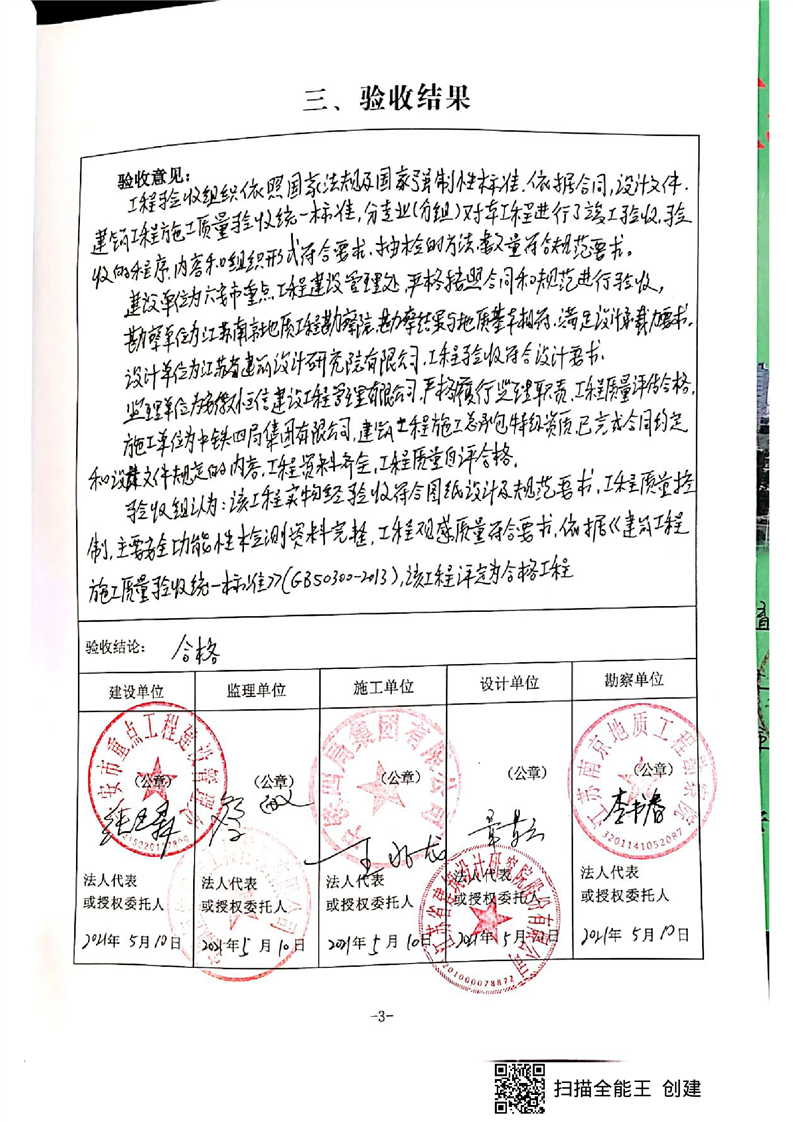 三、验收结果
验收意见：
工程验收组织依照国家法规及国家强制性标准.依据合同,设计文件.
建筑工程施工质量验收统一标准,分专业(分组)对本工程进行了竣工验收,验
收的程序、内容和组织形式符合要求、抽检的方法、数量符合规范要求。
建设单位为六安市重点工程建设管理处,严格按照合同和规范进行验收,
勘察单位为江苏南京地质工程勘察院,勘察结果与地质基本相符,满足设计承载力要求.
设计单位为江苏省建筑设计研究院有限公司,工程验收符合设计要求.
监理单位为安徽恒信建设工程管理有限公司,严格履行监理职责,工程质量评估合格,
施工单位为中铁四局集团有限公司,建筑工程施工总承包特级资质,已完成合同约定
和设计文件规定的内容,工程资料齐全,工程质量自评合格,
验收组认为:该工程实物经验收符合图纸设计及规范要求,工程质量控
制,主要安全功能性检测资料完整,工程观感质量符合要求,依据《建筑工程
施工质量验收统一标准》(GB50300-2013),该工程评定为合格工程
验收结论： 合格
建设单位 监理单位 施工单位 设计单位 勘察单位
（公章） （公章） （公章） （公章） （公章）
李书春
法人代表 法人代表 法人代表 法人代表 法人代表
或授权委托人 或授权委托人 或授权委托人 或授权委托人 或授权委托人
2021年 5月10日 2021年5月10日 2021年5月10日 2021年5月10日 2021年 5月10日
安市重点工程建设管理处
四局集团有限公司
江苏南京地质工程勘察院
3201141052087
江苏省建筑设计研究院股份有限公司
3201000078872
-3-
扫描全能王 创建